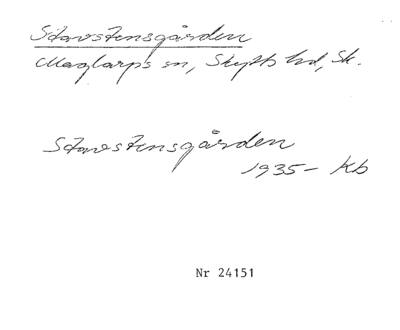 Stavstensgården
Maglarps sn, Skytts hd, Sk.
Stavstensgården
1935- Kb
Nr 24151